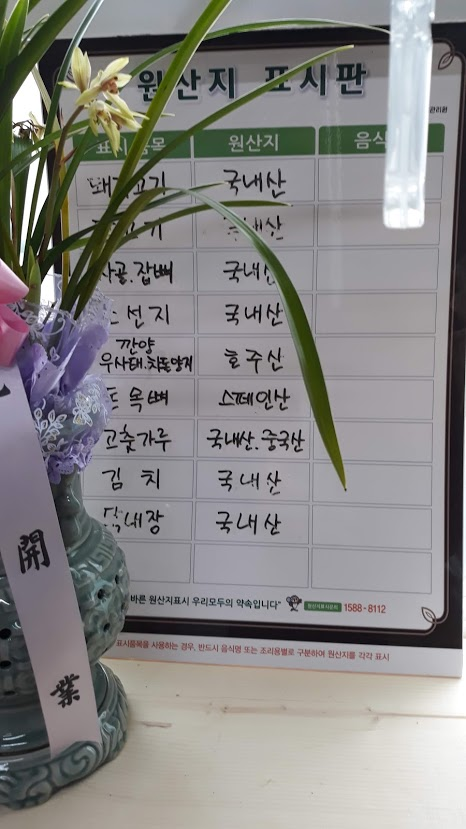 원산지 표시판
관리원
표시품목 원산지 음식
돼지고기 국내산
고기 국내산
사골.잡뼈 국내산
선지 국내산
깐양
우사태. 호주산
목뼈 스페인산
고춧가루 국내산.중국산
김치 국내산
닭내장 국내산
바른 원산지표시 우리모두의 약속입니다" 원산지표시문의 1588-8112
표시품목을 사용하는 경우, 반드시 음식명 또는 조리용별로 구분하여 원산지를 각각 표시
開
業